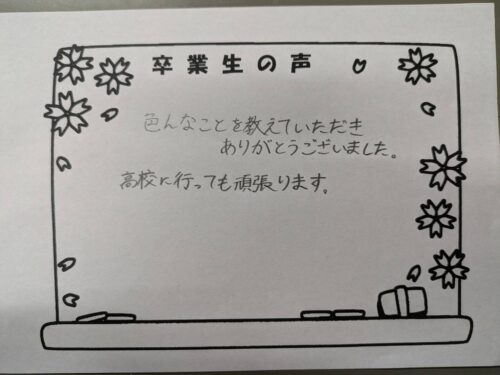 卒業生の声
色んなことを教えていただき
ありがとうございました。
高校に行っても頑張ります。